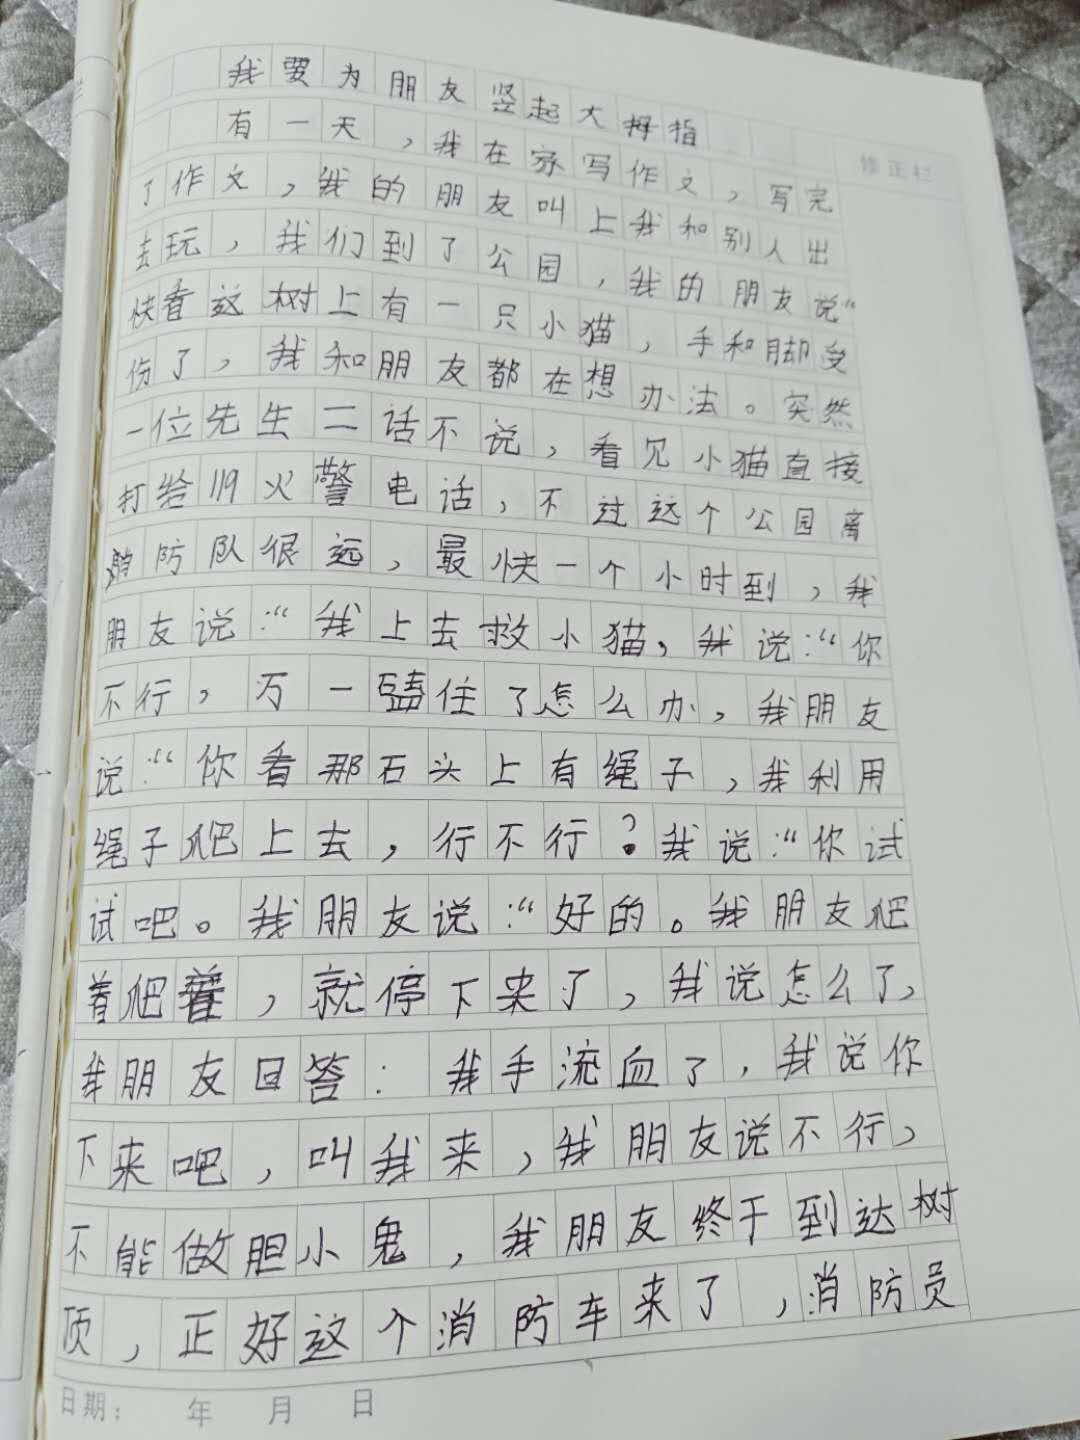 我要为朋友竖起大拇指
有一天，我在家写作文，写完
了作文，我的朋友叫上我和别人出
去玩，我们到了公园，我的朋友说“
快看这树上有一只小猫，手和脚受
伤了，我和朋友都在想办法。突然
一位先生二话不说，看见小猫直接
打给119火警电话，不过这个公园离
消防队很远，最快一个小时到，我
朋友说：“我上去救小猫，我说：“你
不行，万一磕住了怎么办，我朋友
说：“你看那石头上有绳子，我利用
绳子爬上去，行不行？我说：“你试
试吧。我朋友说：“好的。我朋友爬
着爬着，就停下来了，我说怎么了，
我朋友回答：我手流血了，我说你
下来吧，叫我来，我朋友说不行，
不能做胆小鬼，我朋友终于到达树
顶，正好这个消防车来了，消防员
修正栏
日期： 年 月 日